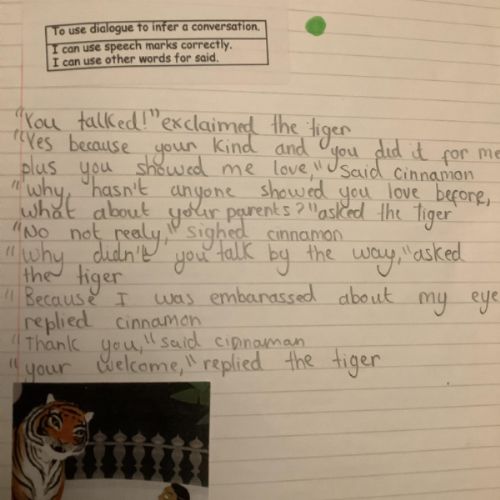 To use dialogue to infer a conversation.
I can use speech marks correctly.
I can use other words for said.
"You talked!" exclaimed the tiger
"Yes because your kind and you did it for me
plus you showed me love," said cinnamon
"why, hasn't anyone showed you love before,
what about your parents?" asked the tiger
"No not realy," sighed cinnamon
"why didn't you talk by the way," asked
the tiger
"Because I was embarassed about my eye
replied cinnamon
"Thank you," said cinnaman
"your welcome," replied the tiger